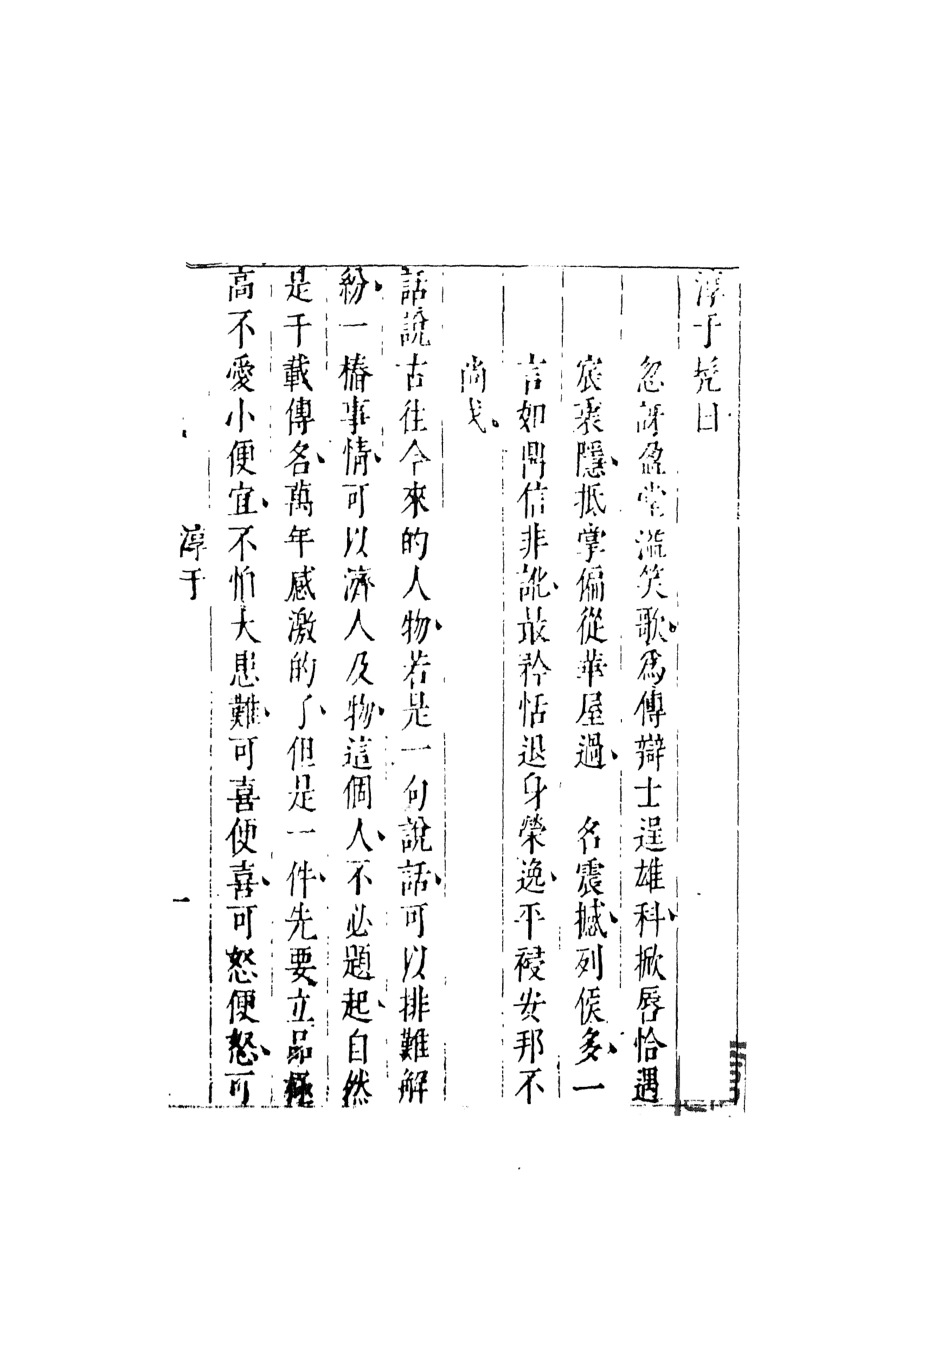 淳于髡曰
忽訝盈堂溢笑歌。爲傳辯士逞雄科、掀唇恰遇
宸衷隱、抵掌偏從華屋過、　名震撼、列侯多、一
言如鼎信非訛、最矜恬退身榮逸、平祲安邦不
尚戈。
話說古往今來的人物、若是一句說話、可以排難解
紛、一樁事情、可以濟人及物、這個人、不必題起、自然
是千載傳名、萬年感激的了、但是一件、先要立品極
高不愛小便宜、不怕大患難、可喜便喜、可怒便怒、可
淳于
一